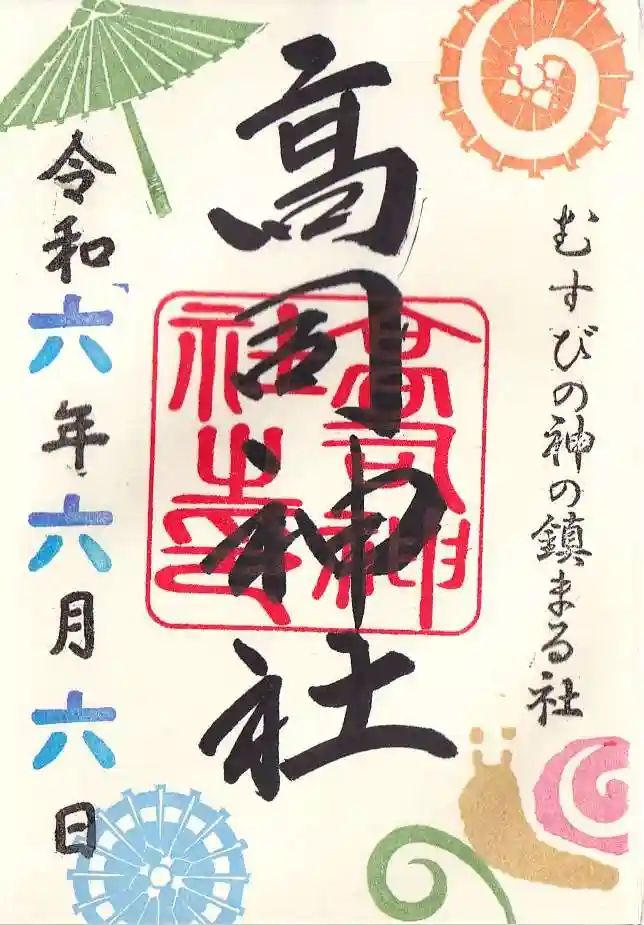 むすびの神の鎮まる社
高司神社
高司神
社之印
令和六年六月六日